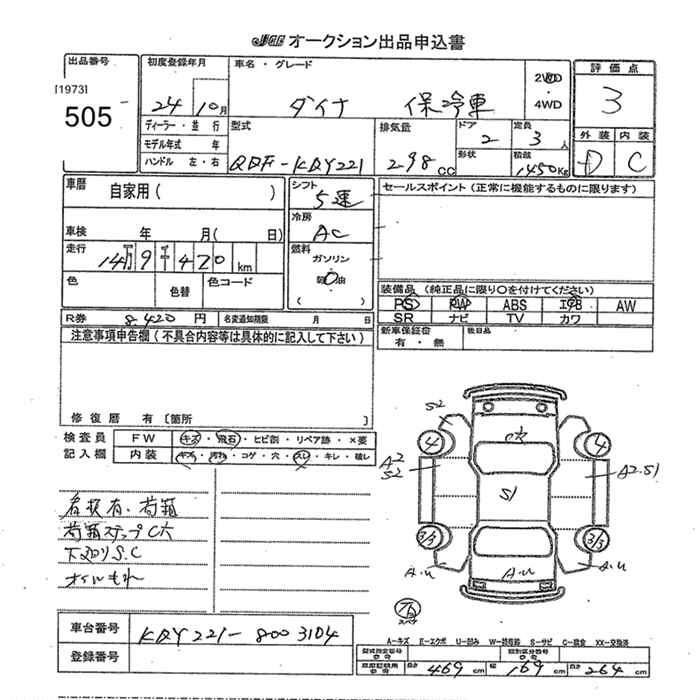 JGC オークション出品申込書
出品番号
[1973]
505
初度登録年月
24 10月
ディーラー・並行
モデル年式 年
ハンドル 左・右
車名・グレード
ダイナ 保冷車
2WD
・
4WD
評価点
3
外装 内装
D C
型式
QDF-KDY221
排気量
2.98 CC
ドア
2
形状
定員
3人
積載
1450Kg
車歴
自家用( )
車検 年 月( 日)
走行
14万9千420km
色 色替 色コード
シフト
5速
冷房
AC
燃料
ガソリン
軽油
( )
セールスポイント(正常に機能するものに限ります)
装備品(純正品に限り○を付けてください)
PS PW ABS エアB AW
SR ナビ TV カワ
新車保証書
有・無
後日品
R券 8,420円
名変通知期限 月 日
注意事項申告欄(不具合内容等は具体的に記入して下さい)
修復歴 有[箇所 ]
検査員
記入欄
FW キズ・飛石・ヒビ割・リペア跡・×要
内装 キズ・汚れ・コゲ・穴・スレ・キレ・破レ
荷箱
荷箱ステップC穴
下廻りS.C
オイルモレ
S2
4 4
A2
S2
S1
A2.S1
3/3 3/3
A.U A.U A.U
スペア
車台番号 KDY221-8003104
登録番号
A-キズ E-エクボ U-凹み W-補修跡 S-サビ C-腐食 XX-交換済
型式指定番号 類別区分番号
長さ 469cm 幅 169cm 高さ 264cm